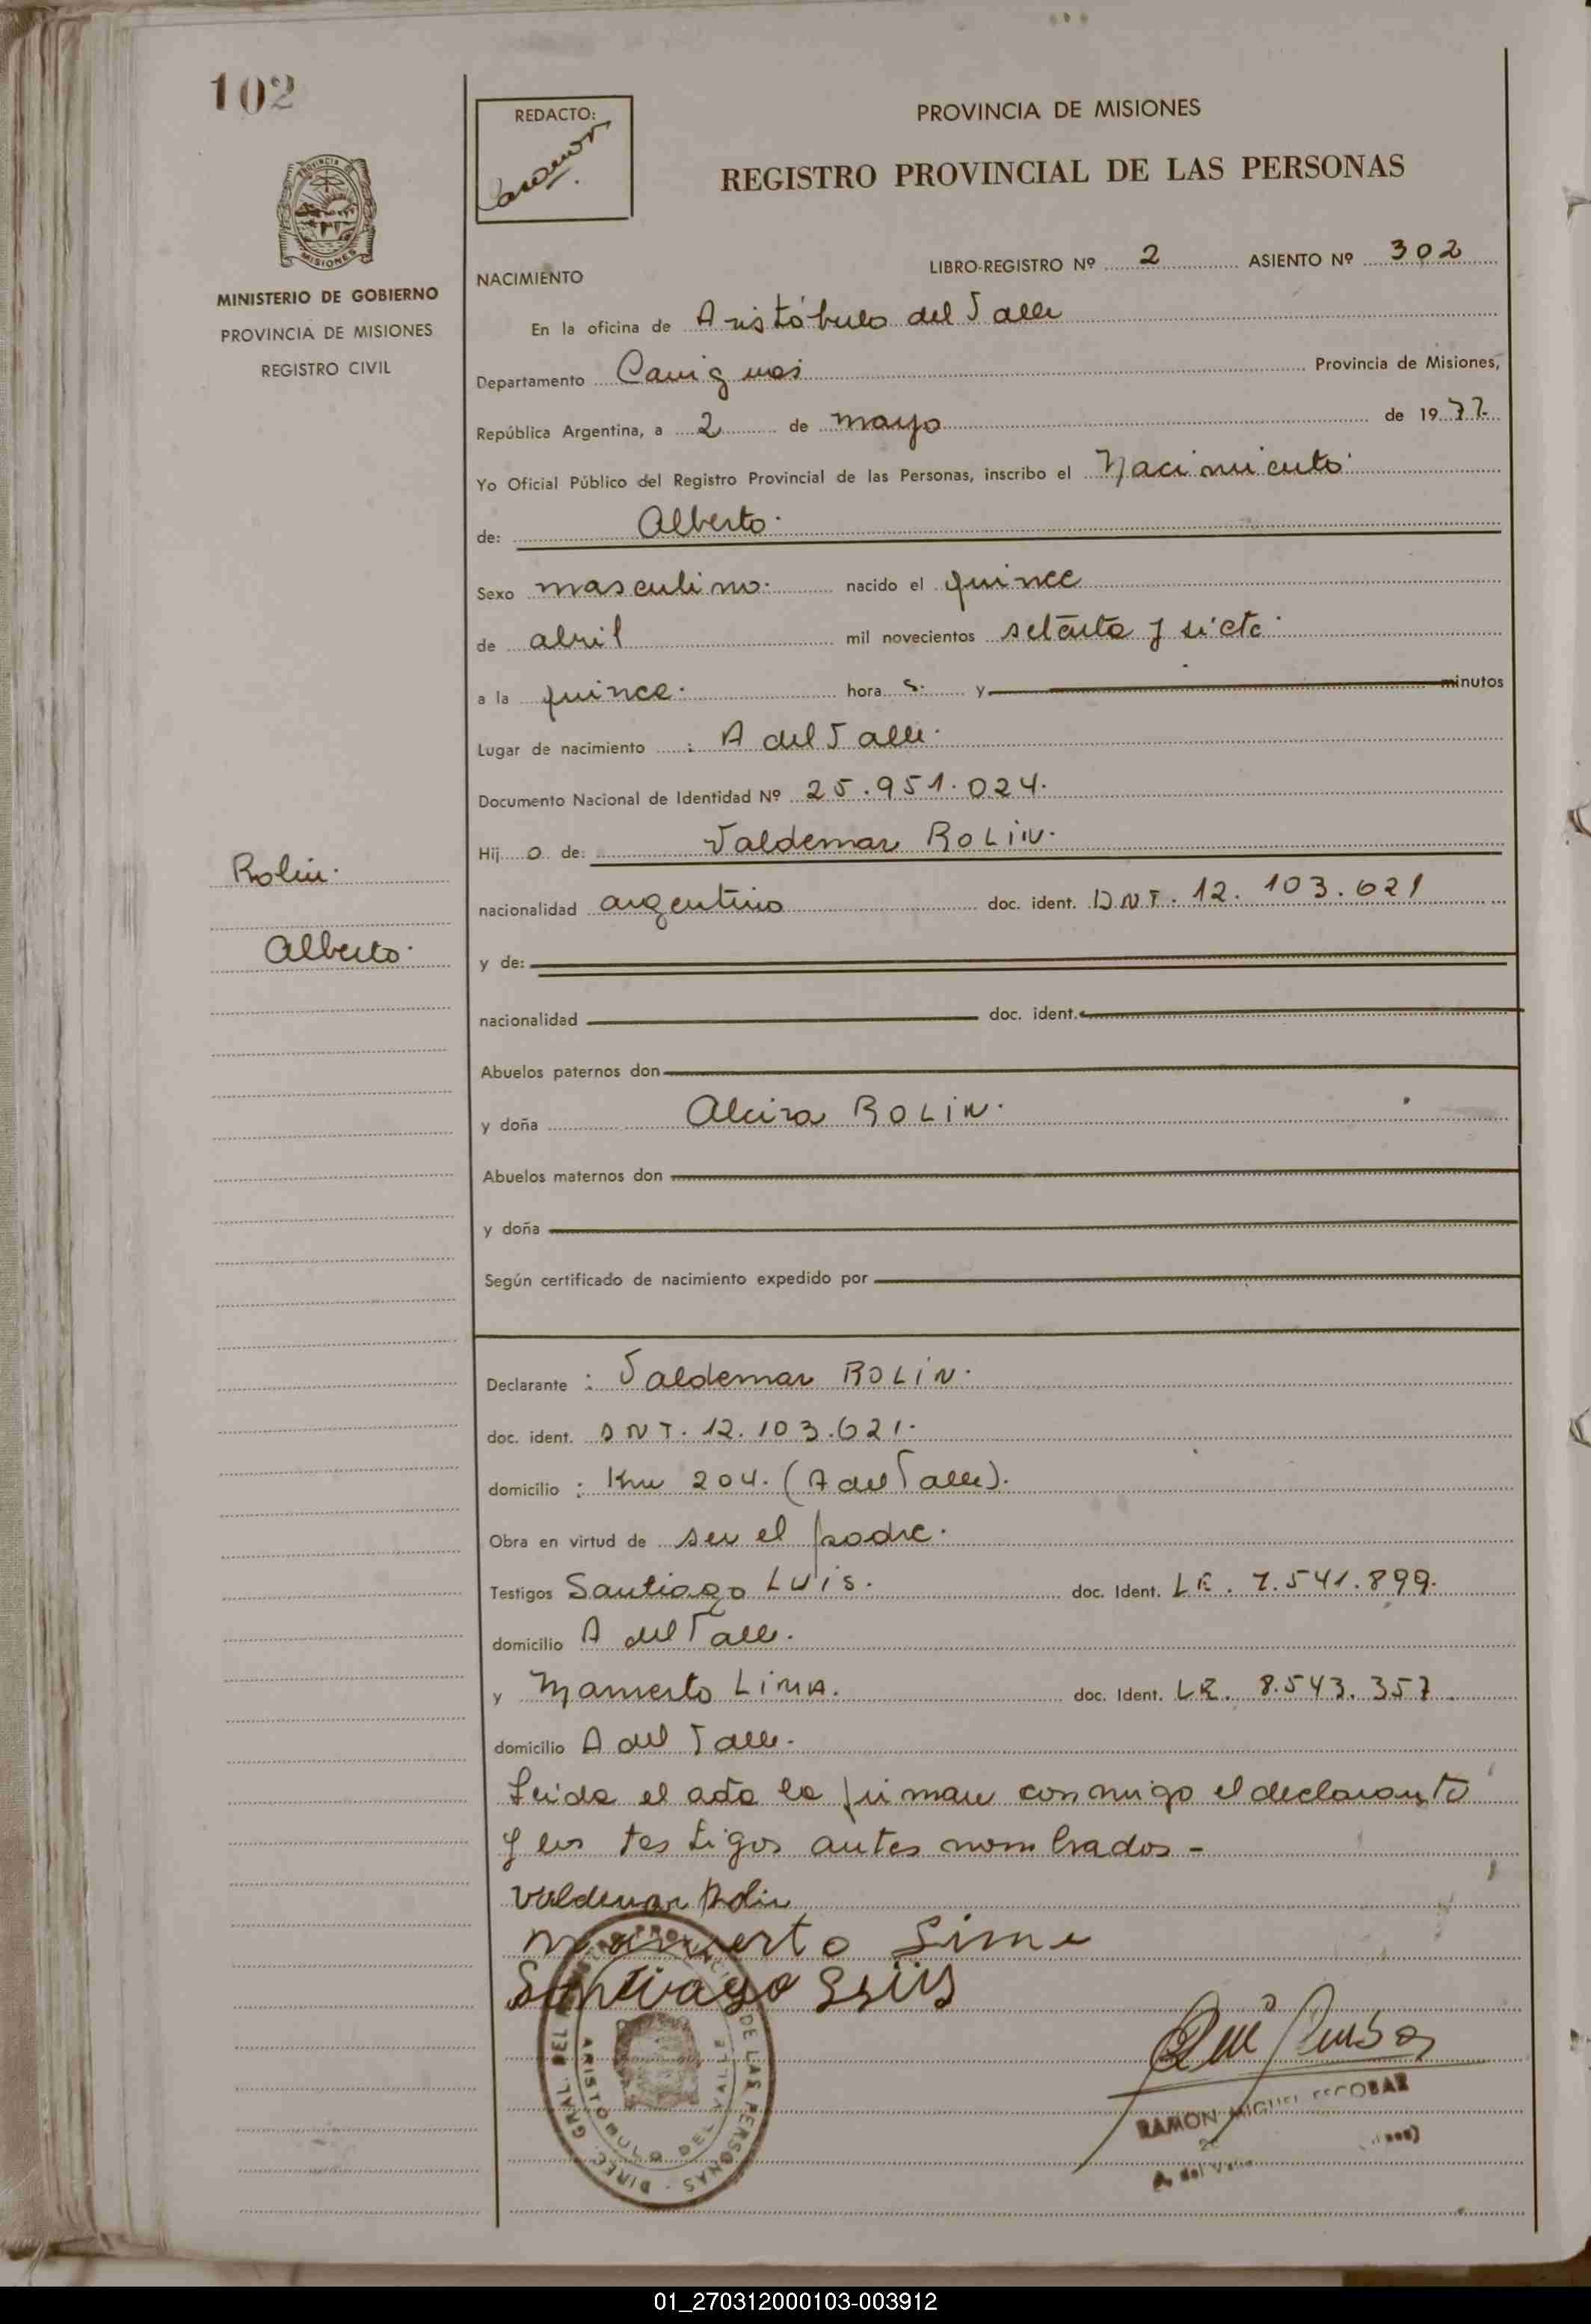 102
REDACTO:
PROVINCIA DE MISIONES
REGISTRO PROVINCIAL DE LAS PERSONAS
PROVINCIA DE
MISIONES
MINISTERIO DE GOBIERNO
PROVINCIA DE MISIONES
REGISTRO CIVIL
LIBRO-REGISTRO Nº 2 ASIENTO Nº 302
NACIMIENTO
En la oficina de Aristóbulo del Valle
Departamento Cainguas Provincia de Misiones,
República Argentina, a 2 de mayo de 1977
Yo Oficial Público del Registro Provincial de las Personas, inscribo el Nacimiento
de: Alberto
Sexo masculino nacido el quince
de abril mil novecientos setenta y siete
a la quince hora s y minutos
Lugar de nacimiento : A del Valle
Documento Nacional de Identidad Nº 25.951.024.
Hij o de: Valdemar ROLIN.
Rolin.
nacionalidad argentino doc. ident. DNI. 12.103.621
Alberto.
y de:
nacionalidad doc. ident.
Abuelos paternos don
y doña Alcira ROLIN.
Abuelos maternos don
y doña
Según certificado de nacimiento expedido por
Declarante : Valdemar ROLIN.
doc. ident. DNI. 12.103.621.
domicilio : Km 204. (A del Valle).
Obra en virtud de ser el padre.
Testigos Santiago LUIS. doc. Ident. LE. 7.541.899.
domicilio A del Valle.
y Mamerto LIMA. doc. Ident. LE. 8.543.357.
domicilio A del Valle.
Leida el acta la firman conmigo el declarante
y los testigos antes nombrados -
Valdemar Rolin
Mamerto Lima
Santiago Luis
DIREC. GRAL. DEL DE LAS PERSONAS
ARISTOBULO DEL VALLE
RAMON MIGUEL ESCOBAR
A. del Valle
01_270312000103-003912